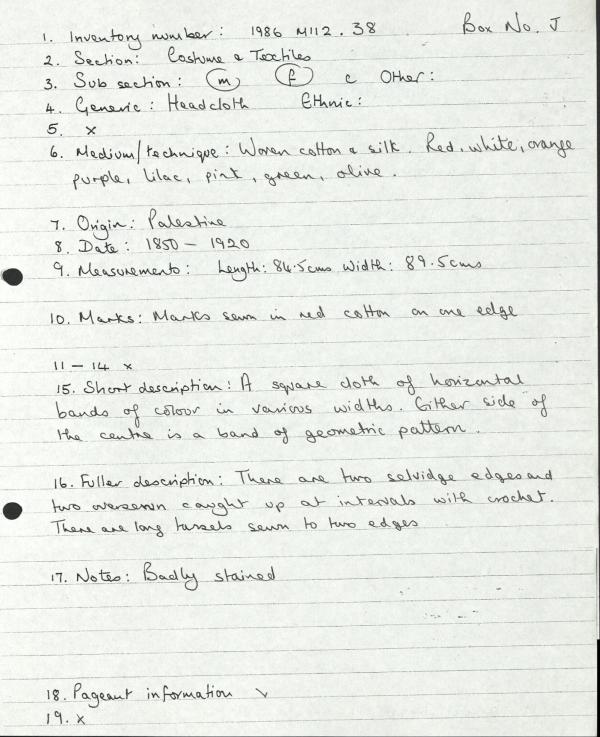 1. Inventory number: 1986 M112.38 Box No. J
2. Section: Costume & Textiles
3. Sub section: m f c Other:
4. Generic: Headcloth Ethnic:
5. x
6. Medium/technique: Woven cotton & silk. Red, white, orange
purple, lilac, pink, green, olive.
7. Origin: Palestine
8. Date: 1850 – 1920
9. Measurements: Length: 84.5cms Width: 89.5cms
10. Marks: Marks sewn in red cotton on one edge
11 – 14 x
15. Short description: A square cloth of horizontal
bands of colour in various widths. Either side of
the centre is a band of geometric pattern.
16. Fuller description: There are two selvidge edges and
two oversewn caught up at intervals with crochet.
There are long tassels sewn to two edges
17. Notes: Badly stained
18. Pageant information ✓
19. x